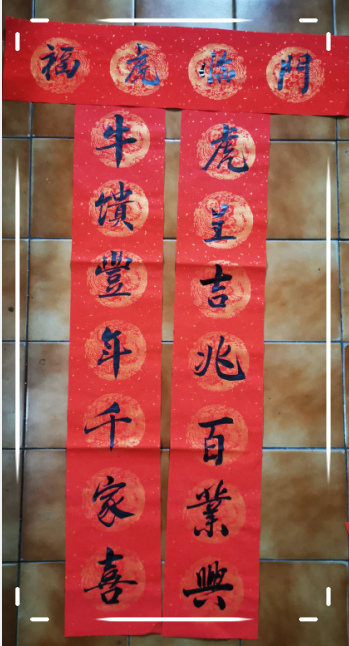 福虎临門
牛馈豐年千家喜
虎呈吉兆百業興